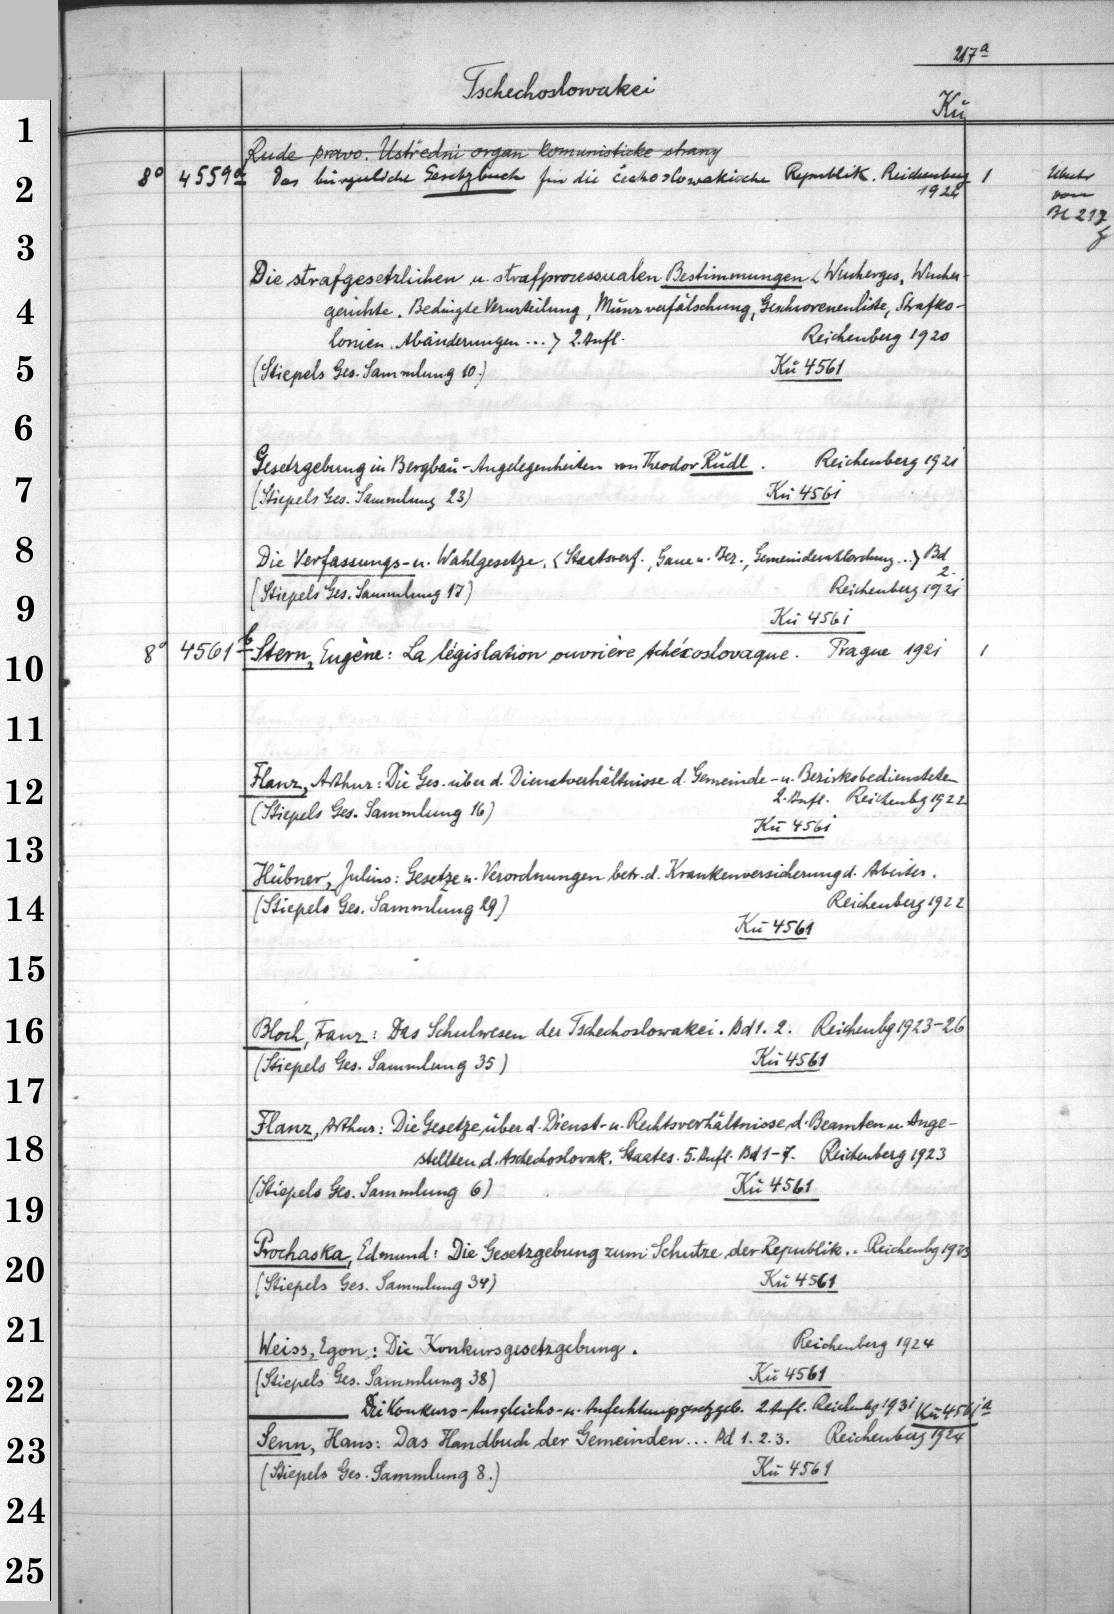 217a
Tschechoslowakei
Kü
1
Rude pravo. Ústřední organ komunistické strany
2
8° 4559a Das bürgerliche Gesetzbuch für die čechoslowakische Republik. Reichenberg 1
1924
von
Bl 217
3
Die strafgesetzlichen u. strafprozessualen Bestimmungen < Wucherges., Wucher-
4
gerichte, Bedingte Verurteilung, Münzverfälschung, Geschworenenliste, Strafko-
lonien. Abänderungen ...> 2. Aufl. Reichenberg 1920
5
(Stiepels Ges. Sammlung 10.) Kü 4561
6
Gesetzgebung in Bergbau-Angelegenheiten von Theodor Rüdl. Reichenberg 1921
7
(Stiepels Ges. Sammlung 23) Kü 4561
8
Die Verfassungs- u. Wahlgesetze. < Staatsverf., Gaue u. Bez., Gemeindewahlordnung...> Bd
2.
9
(Stiepels Ges. Sammlung 17) Reichenberg 1921
Kü 4561
10
8° 4561b Stern, Eugène: La législation ouvrière tchécoslovaque. Prague 1921 1
11
12
Flanz, Arthur: Die Ges. über d. Dienstverhältnisse d. Gemeinde- u. Bezirksbedienstete
2. Aufl. Reichenbg 1922
(Stiepels Ges. Sammlung 16)
Kü 4561
13
Hübner, Julius: Gesetze u. Verordnungen betr. d. Krankenversicherung d. Arbeiter.
14
(Stiepels Ges. Sammlung 29) Reichenberg 1922
Kü 4561
15
16
Bloch, Franz: Das Schulwesen der Tschechoslowakei. Bd 1. 2. Reichenbg 1923-26
(Stiepels Ges. Sammlung 35) Kü 4561
17
Flanz, Arthur: Die Gesetze über d. Dienst- u. Rechtsverhältnisse d. Beamten u. Ange-
18
stellten d. tschechoslovak. Staates. 5. Aufl. Bd 1-7. Reichenberg 1923
(Stiepels Ges. Sammlung 6) Kü 4561
19
Prochaska, Edmund: Die Gesetzgebung zum Schutze der Republik.. Reichenbg 1923
20
(Stiepels Ges. Sammlung 34) Kü 4561
21
Weiss, Egon: Die Konkursgesetzgebung. Reichenberg 1924
22
(Stiepels Ges. Sammlung 38) Kü 4561
Die Konkurs- Ausgleichs- u. Anfechtungsgesetzgeb. 2. Aufl. Reichenbg 1931 Kü 4561a
23
Senn, Hans: Das Handbuch der Gemeinden... Bd 1. 2. 3. Reichenberg 1924
(Stiepels Ges. Sammlung 8.) Kü 4561
24
25